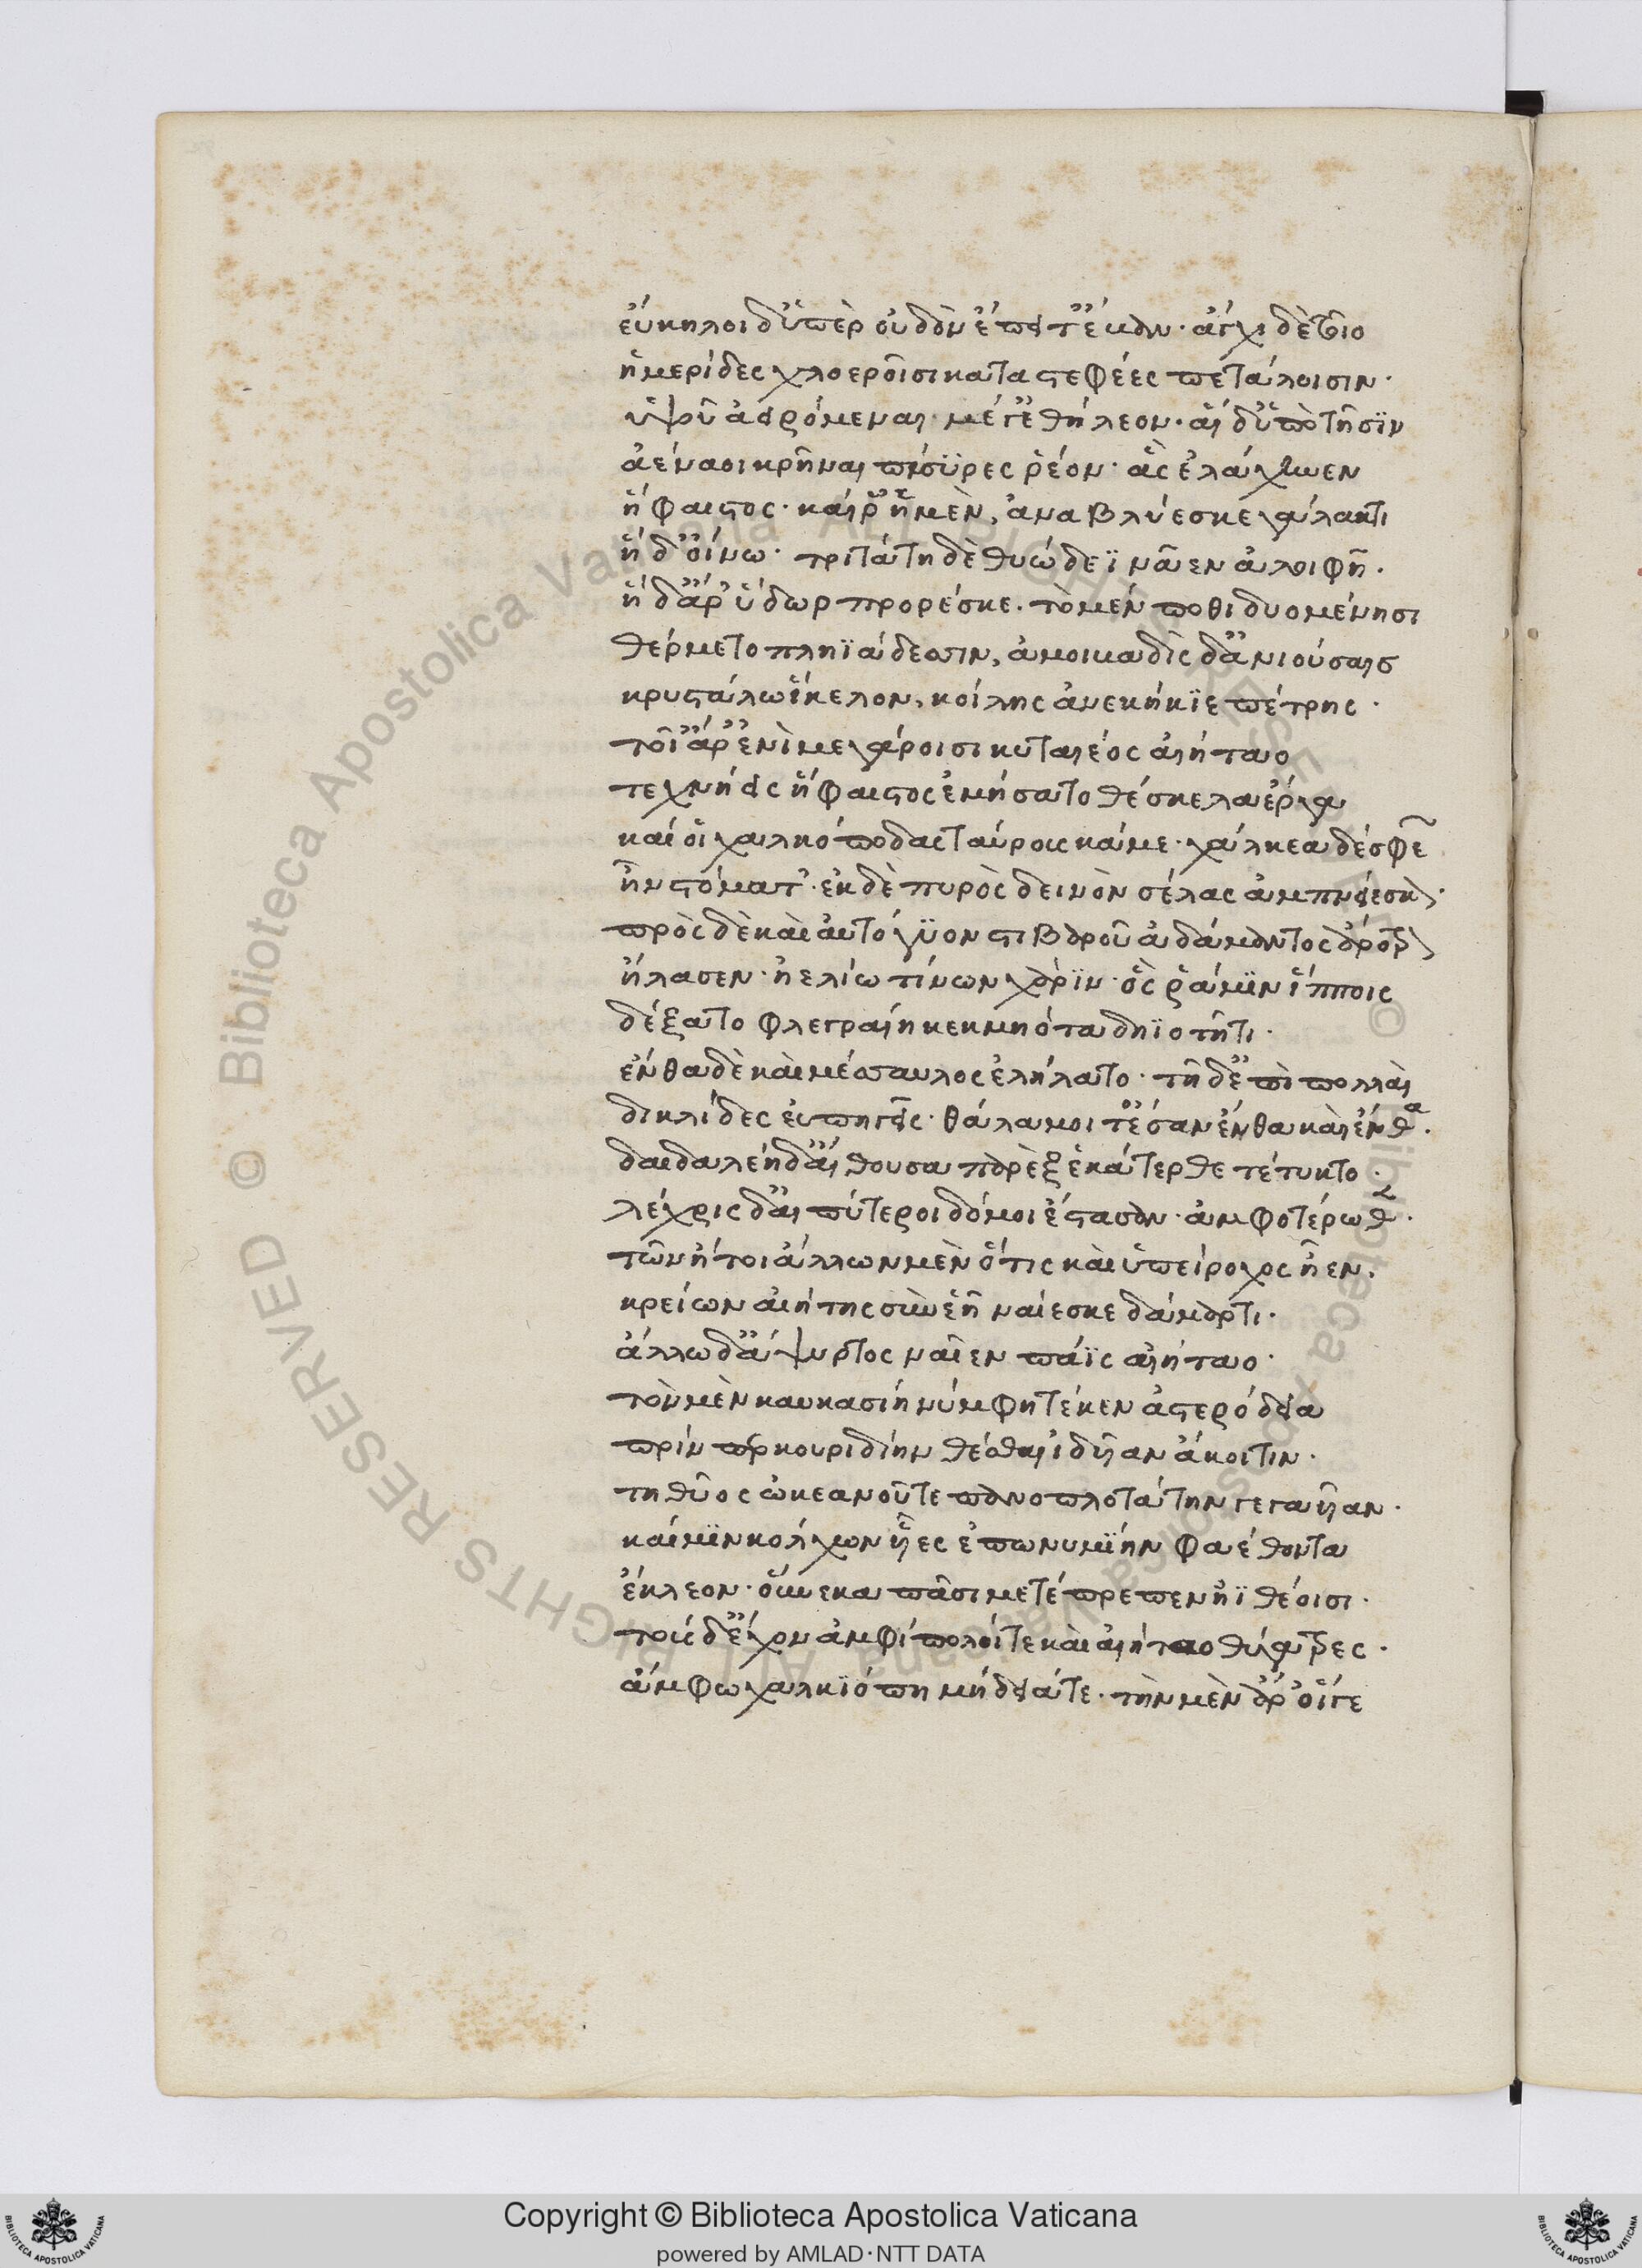 εὔκηλοι δ' ὑπὲρ οὐδὸν ἔπειτ' ἔκιον· ἄγχι δὲ τοῖο
ἡμερίδες χλοεροῖσι καταστεφέες πετάλοισιν·
ὑψοῦ ἀειρόμεναι· μέγ' ἐθήλεον· αἱ δ' ὑπὸ τῇσϊν
ἀέναοι κρῆναι πίσϋρες ῥέον· ἃς ἐλάχηνεν
ἥφαιστος· καί ῥ' ἡ μὲν, ἀναβλύεσκε γάλακτι
ἡ δ' οἴνω· τριτάτη δὲ θυώδεϊ νᾶεν ἀλοιφῇ·
ἡ δ' ἄρ' ὕδωρ προρέσκε· τὸ μέν ποθι δυομένησι
θέρμετο πληϊάδεσσιν, ἀμοιβαδὶς δ' ἀνιούσαις
κρυστάλω ἴκελον, κοίλης ἀνεκήκϊε πέτρης·
τοῖ' ἄρ' ἐνὶ μεγάροισι κυταιέος αἰήταο
τεχνήεις ἥφαιστος ἐμήσατο θέσκελα ἔργα
καί οἱ χαλκόποδας ταύρους κάμε· χάλκεα δέ σφε͂
ἦν στόματ'· ἐκ δὲ πυρὸς δεινὸν σέλας ἀμπνείεσκον·
πρὸς δὲ καὶ αὐτόγϋον στιβαροῦ ἀδάμαντος ἄροτρον
ἤλασεν· ἠελίω τίνων χάρϊν· ὅς ῥά μϊν ἵπποις
δέξατο φλεγραίη κεκμηότα δηϊοτῆτι·
ἔνθα δὲ καὶ μέσσαυλος ἐλήλατο· τῇ δ' ἐπὶ πολλαὶ
δικλίδες εὐπηγεῖς· θάλαμοί τ' ἔσαν ἔνθα καὶ ἔνθα·
δαιδαλέη δ' αἴθουσα παρὲξ ἑκάτερθε τέτυκτο·
λέχρις δ' αἰπύτεροι δόμοι ἕστασαν· ἀμφοτέρωθεν·
τῶν ἤτοι ἄλλων μὲν ὅτις καὶ ὑπείροχος ἦεν,
κρείων αἰήτης σὺν ἑῇ ναίεσκε δάμαρτι·
ἄλλω δ' ἄψυρτος ναῖεν πάϊς αἰήταο·
τὸν μὲν καυκασίη νύμφη τέκεν ἀστερόδεια
πρίν περ κουριδίην θέσθαι ἰδυῖαν ἄκοιτιν·
τηθῦος ὠκεανοῦ τε πανοπλοτάτην γεγαυῖαν·
καί μϊν κολχων υἷες ἐπωνυμϊην φαέθοντα
ἔκλεον· οὕνεκα πᾶσι μετέπρεπεν ἠϊθέοισι·
τοὺς δ' ἔχον ἀμφίπολοί τε καὶ αἰήταο θύγατρες·
ἄμφω χαλκϊόπη μήδειά τε· τὴν μὲν ἄρ' οἵγε
© Biblioteca Apostolica Vaticana ALL RIGHTS RESERVED
© Biblioteca Apostolica Vaticana ALL RIGHTS RESERVED
Copyright © Biblioteca Apostolica Vaticana
powered by AMLAD·NTT DATA
BIBLIOTECA APOSTOLICA VATICANA
BIBLIOTECA APOSTOLICA VATICANA